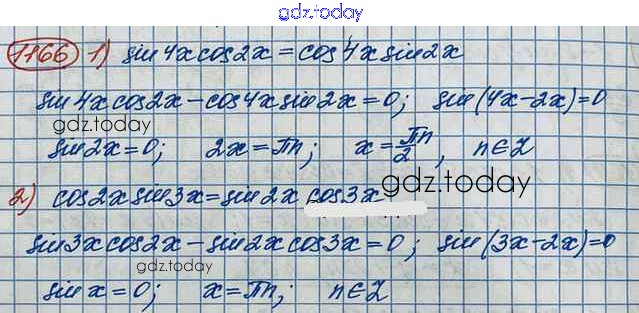 gdz.today
1166 1) sin 4x cos 2x = cos 4x sin 2x
sin 4x cos 2x - cos 4x sin 2x = 0; sin(4x-2x)=0
gdz.today
sin 2x = 0; 2x = πn; x = πn/2, n∈Z
2) cos 2x sin 3x = sin 2x cos 3x
gdz.today
sin 3x cos 2x - sin 2x cos 3x = 0; sin(3x-2x)=0
gdz.today
sin x = 0; x = πn; n∈Z